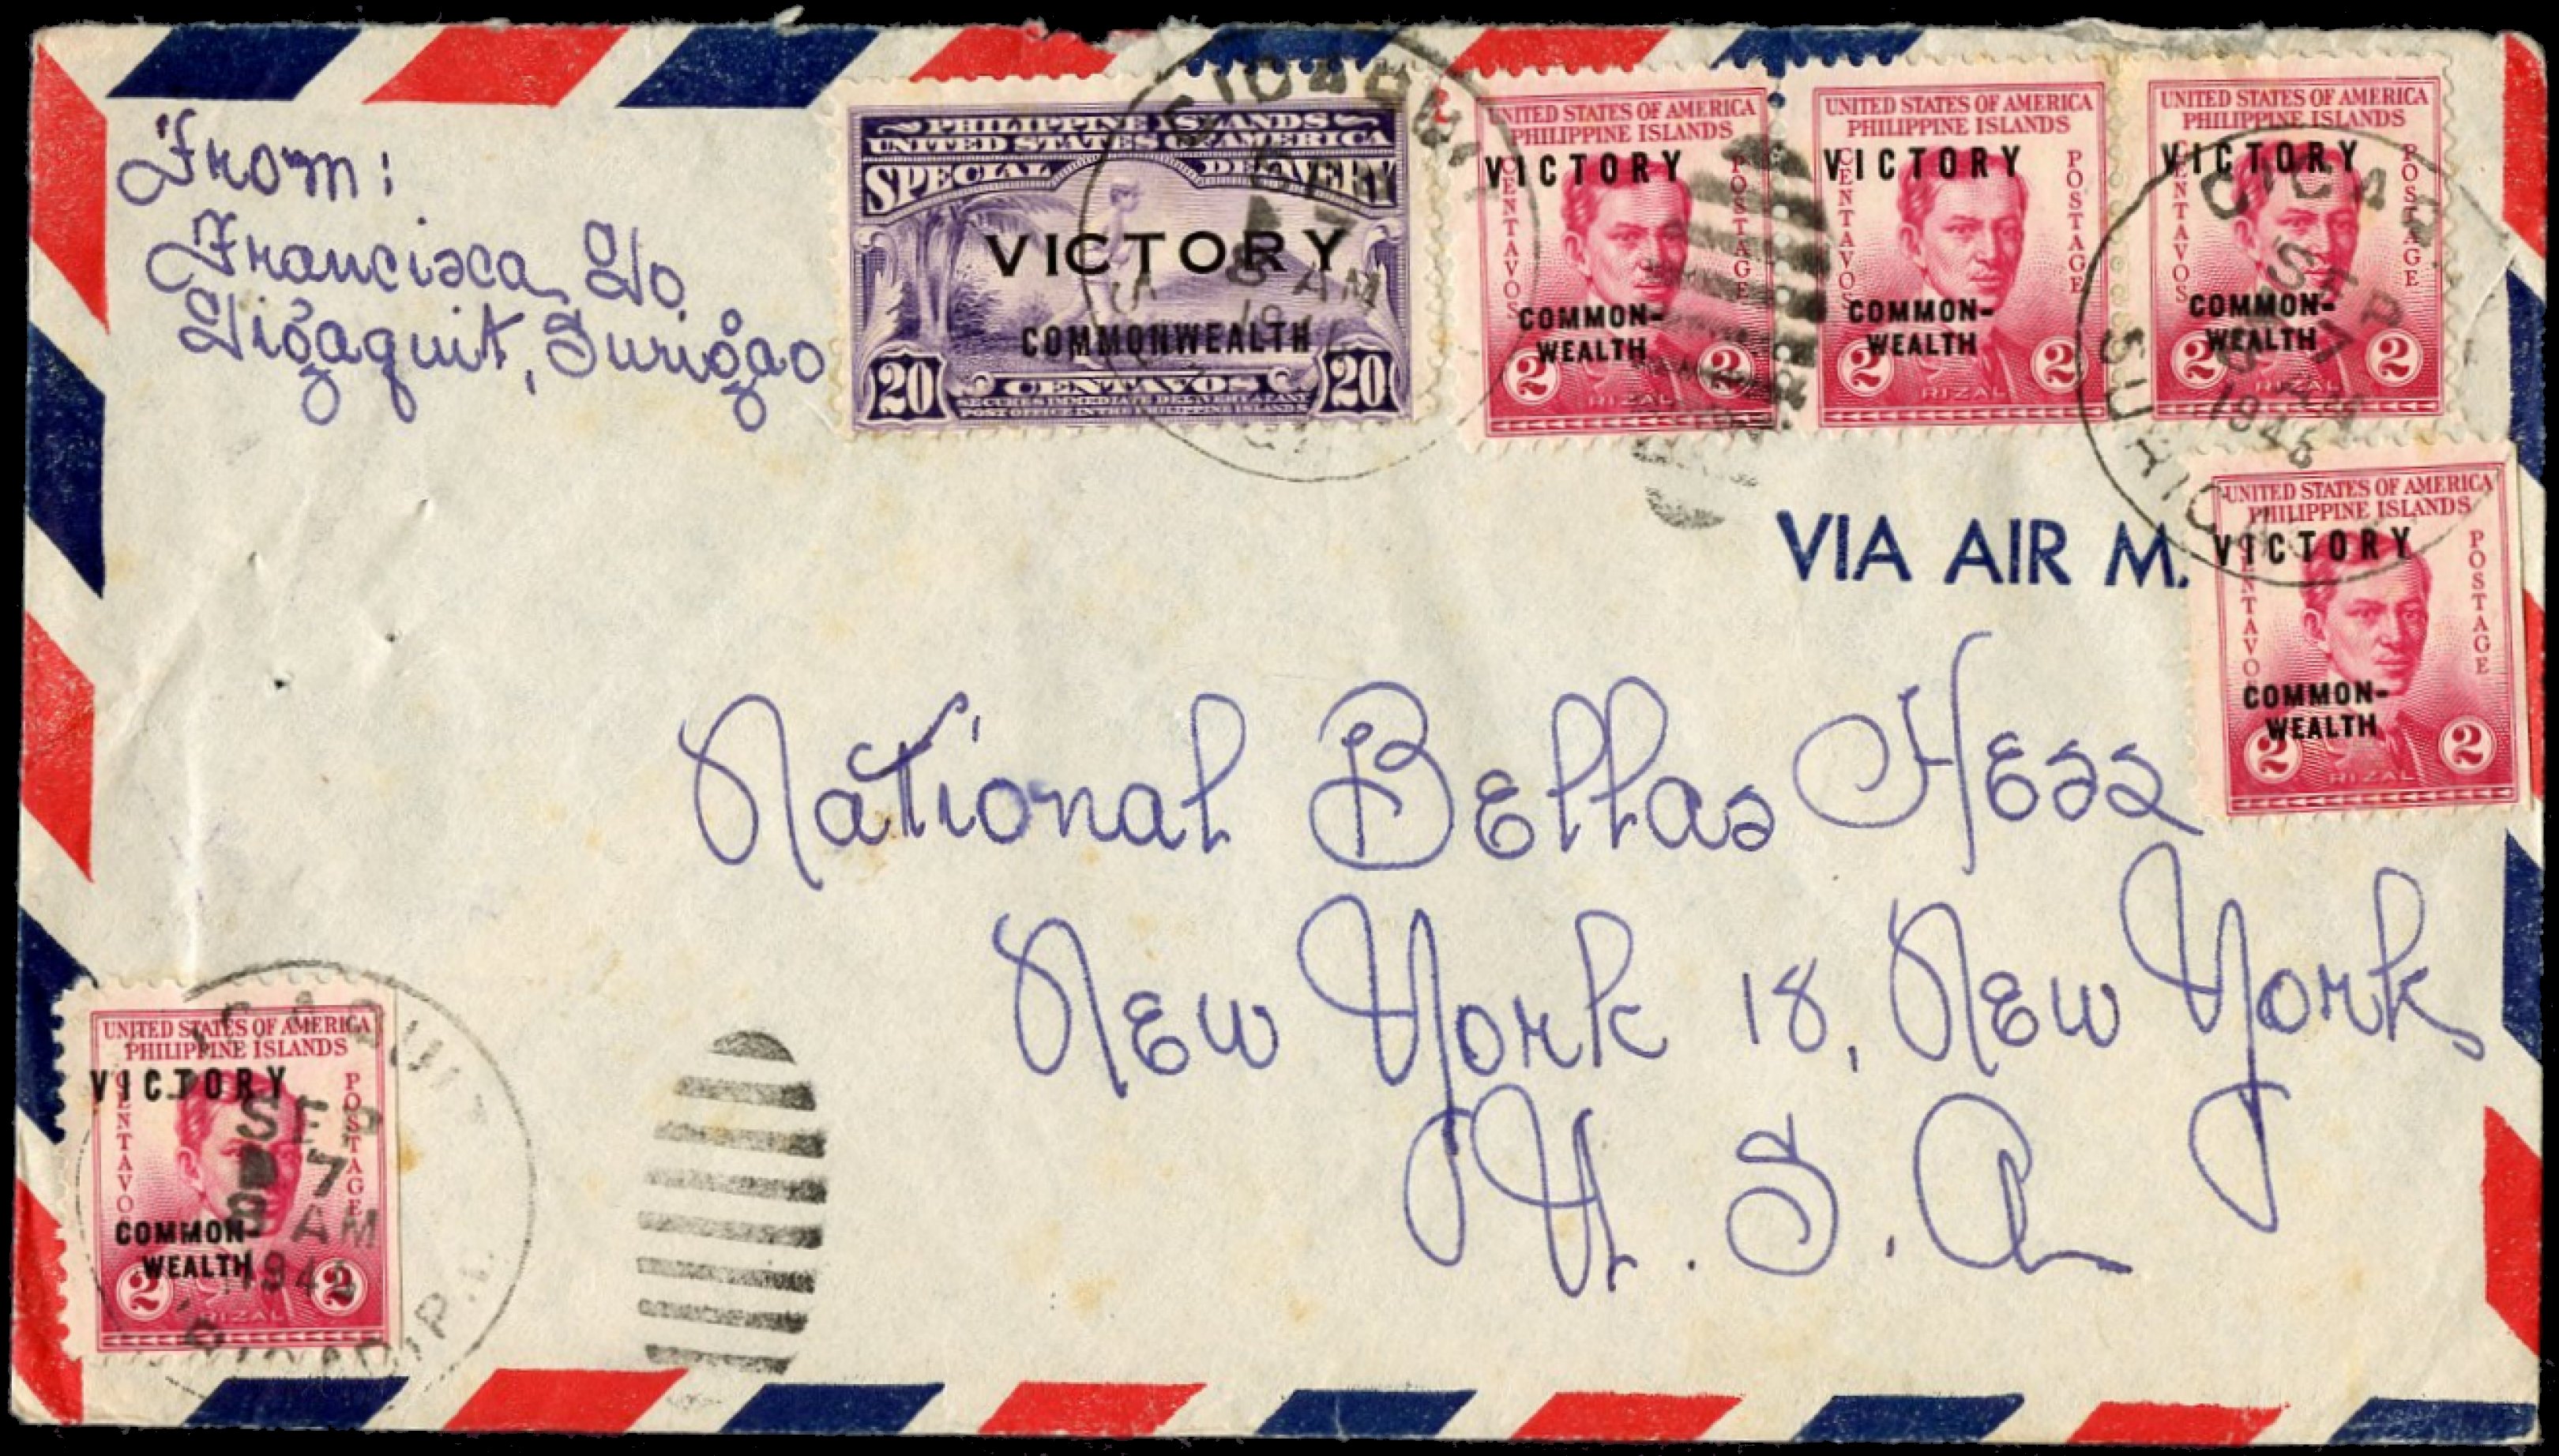 From:
Francisca Go
Gigaquit, Surigao
PHILIPPINE ISLANDS
UNITED STATES OF AMERICA
SPECIAL DELIVERY
VICTORY
COMMONWEALTH
20 CENTAVOS 20
SECURES IMMEDIATE DELIVERY AT ANY
POST OFFICE IN THE PHILIPPINE ISLANDS
8 AM
UNITED STATES OF AMERICA
PHILIPPINE ISLANDS
VICTORY
CENTAVOS
POSTAGE
COMMON-
WEALTH
2 RIZAL 2
UNITED STATES OF AMERICA
PHILIPPINE ISLANDS
VICTORY
CENTAVOS
POSTAGE
COMMON-
WEALTH
2 RIZAL 2
UNITED STATES OF AMERICA
PHILIPPINE ISLANDS
VICTORY
CENTAVOS
POSTAGE
COMMON-
WEALTH
2 RIZAL 2
SEP
7
AM
VIA AIR M.
UNITED STATES OF AMERICA
PHILIPPINE ISLANDS
VICTORY
CENTAVOS
POSTAGE
COMMON-
WEALTH
2 RIZAL 2
National Bellas Hess
New York 18, New York
U. S. A
UNITED STATES OF AMERICA
PHILIPPINE ISLANDS
VICTORY
CENTAVOS
POSTAGE
COMMON-
WEALTH
2 RIZAL 2
SEP
7
AM
P.I.